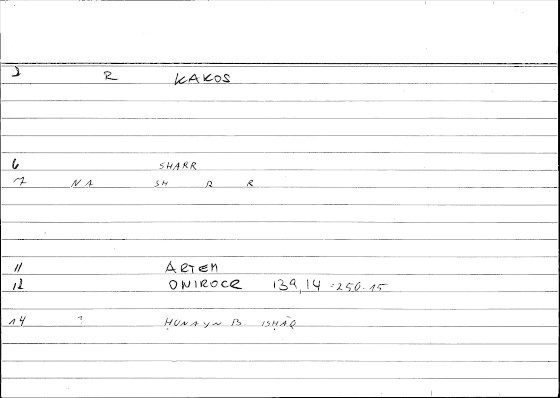 2 R KAKOS
6 SHARR
7 NA SH R R
11 ARTEM
12 ONIROCR 139,14 = 250.15
14 ? ḤUNAYN B ISḤĀQ